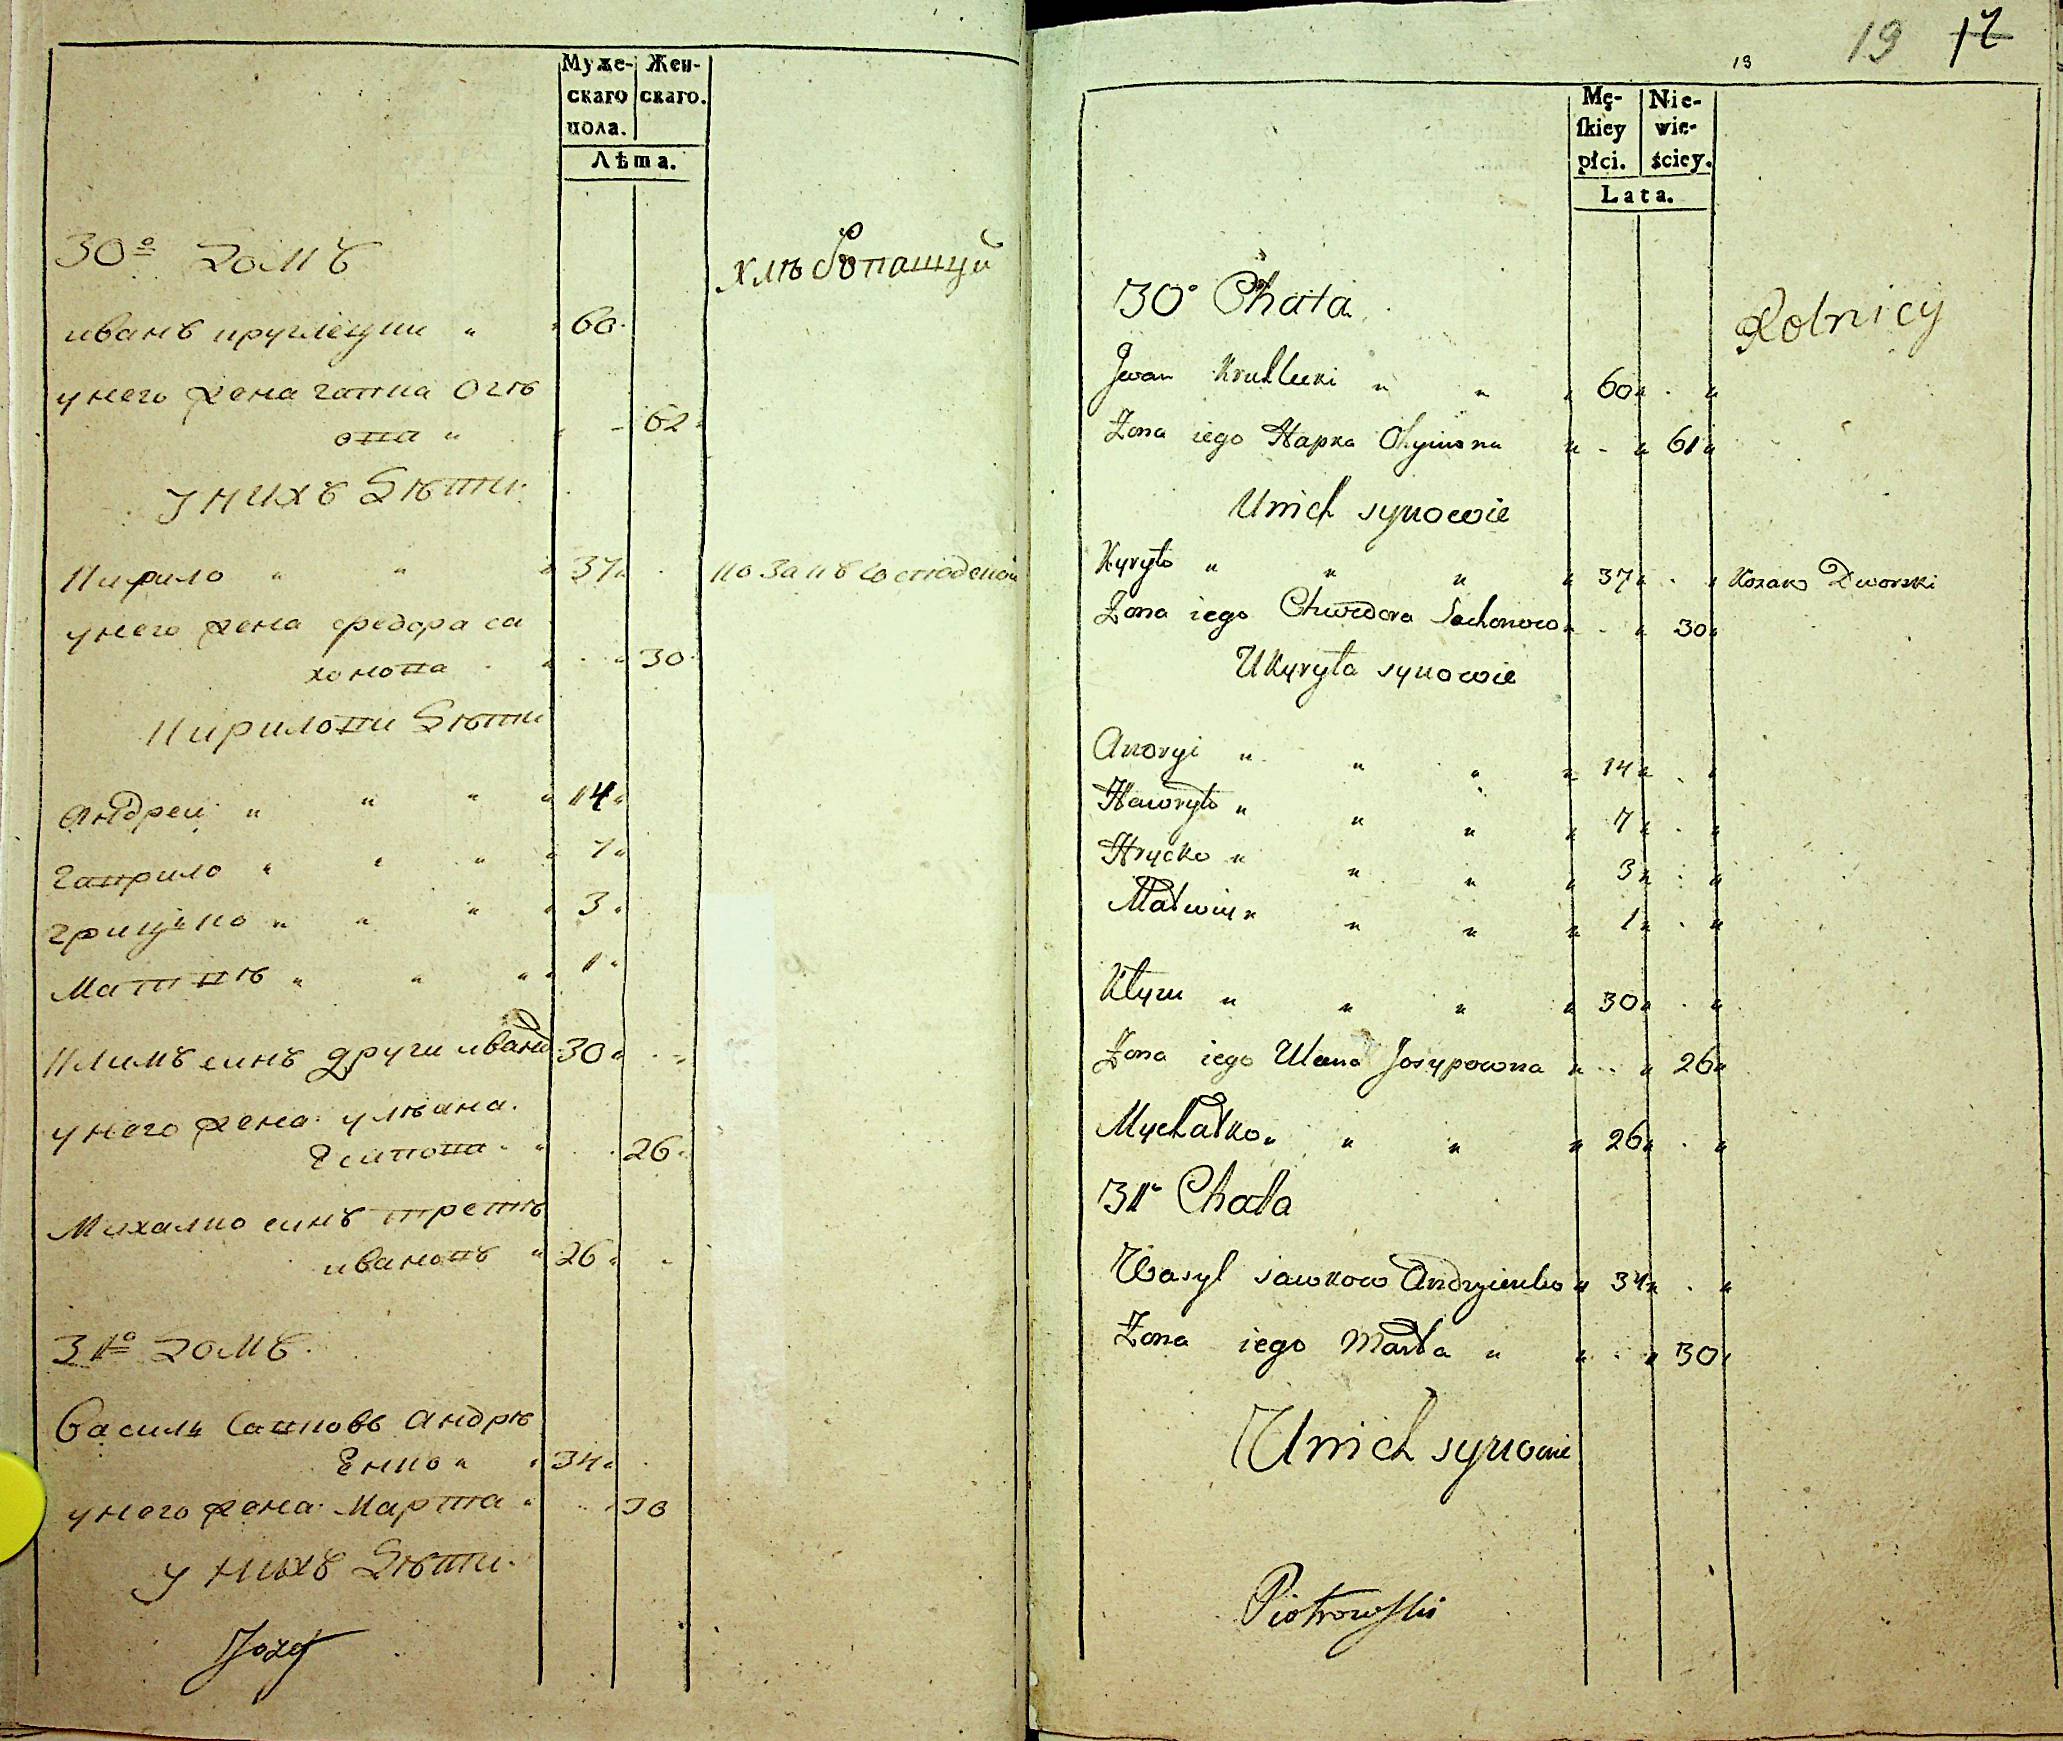 Муже-
скаго
пола.
Жен-
скаго.
Лѣта.
30º Домъ
хлѣбопашцы
иванъ круглецки " " 60
унего жена гапка Охѣ
ова " " - 62
унихъ Дѣти
Кирило " " " 37 козакъ
унего жена федора са
хонова " 30
Кирилови Дѣти
Андреи " " " " 14
гаврило " " " " 7
грицко " " " " 3
Матвѣ " " " " 1
Климъ синъ други ивана 30
унего жена улѣана
Есипова " 26
Михалко синъ третѣ
ивановъ " 26
31º Домъ
Василь Савковъ Андрѣ
Енко " " 34
унего жена Марта " 30
у нихъ Дѣти
Jozef
19 17
13
Mę-
ſkiey
płci.
Nie-
wie-
ściey.
Lata.
30º Chata
Rolnicy
Jwan Kruhlecki " " " 60 " . "
Zona iego Hapka " - " 61 "
Unich synowie
Kyryło " " " " 37 " . " Kozak Dworski
Zona iego Chwedora Sachonowa " . " 30 "
UKyryła synowie
Andryi " " " " 14 " . "
Hawryło " " " " 7 " . "
Hrycko " " " " 3 " . "
Matwiy " " " " 1 " . "
Kłym " " " " 30 " . "
Zona iego Ulana Josypowna " . " 26 "
Mychałko " " " " 26 " . "
31º Chata
Wasyl sawkow Andryienko " 34 " . "
Zona iego Marta " " . " 30 "
Unich synowie
Piotrowſki